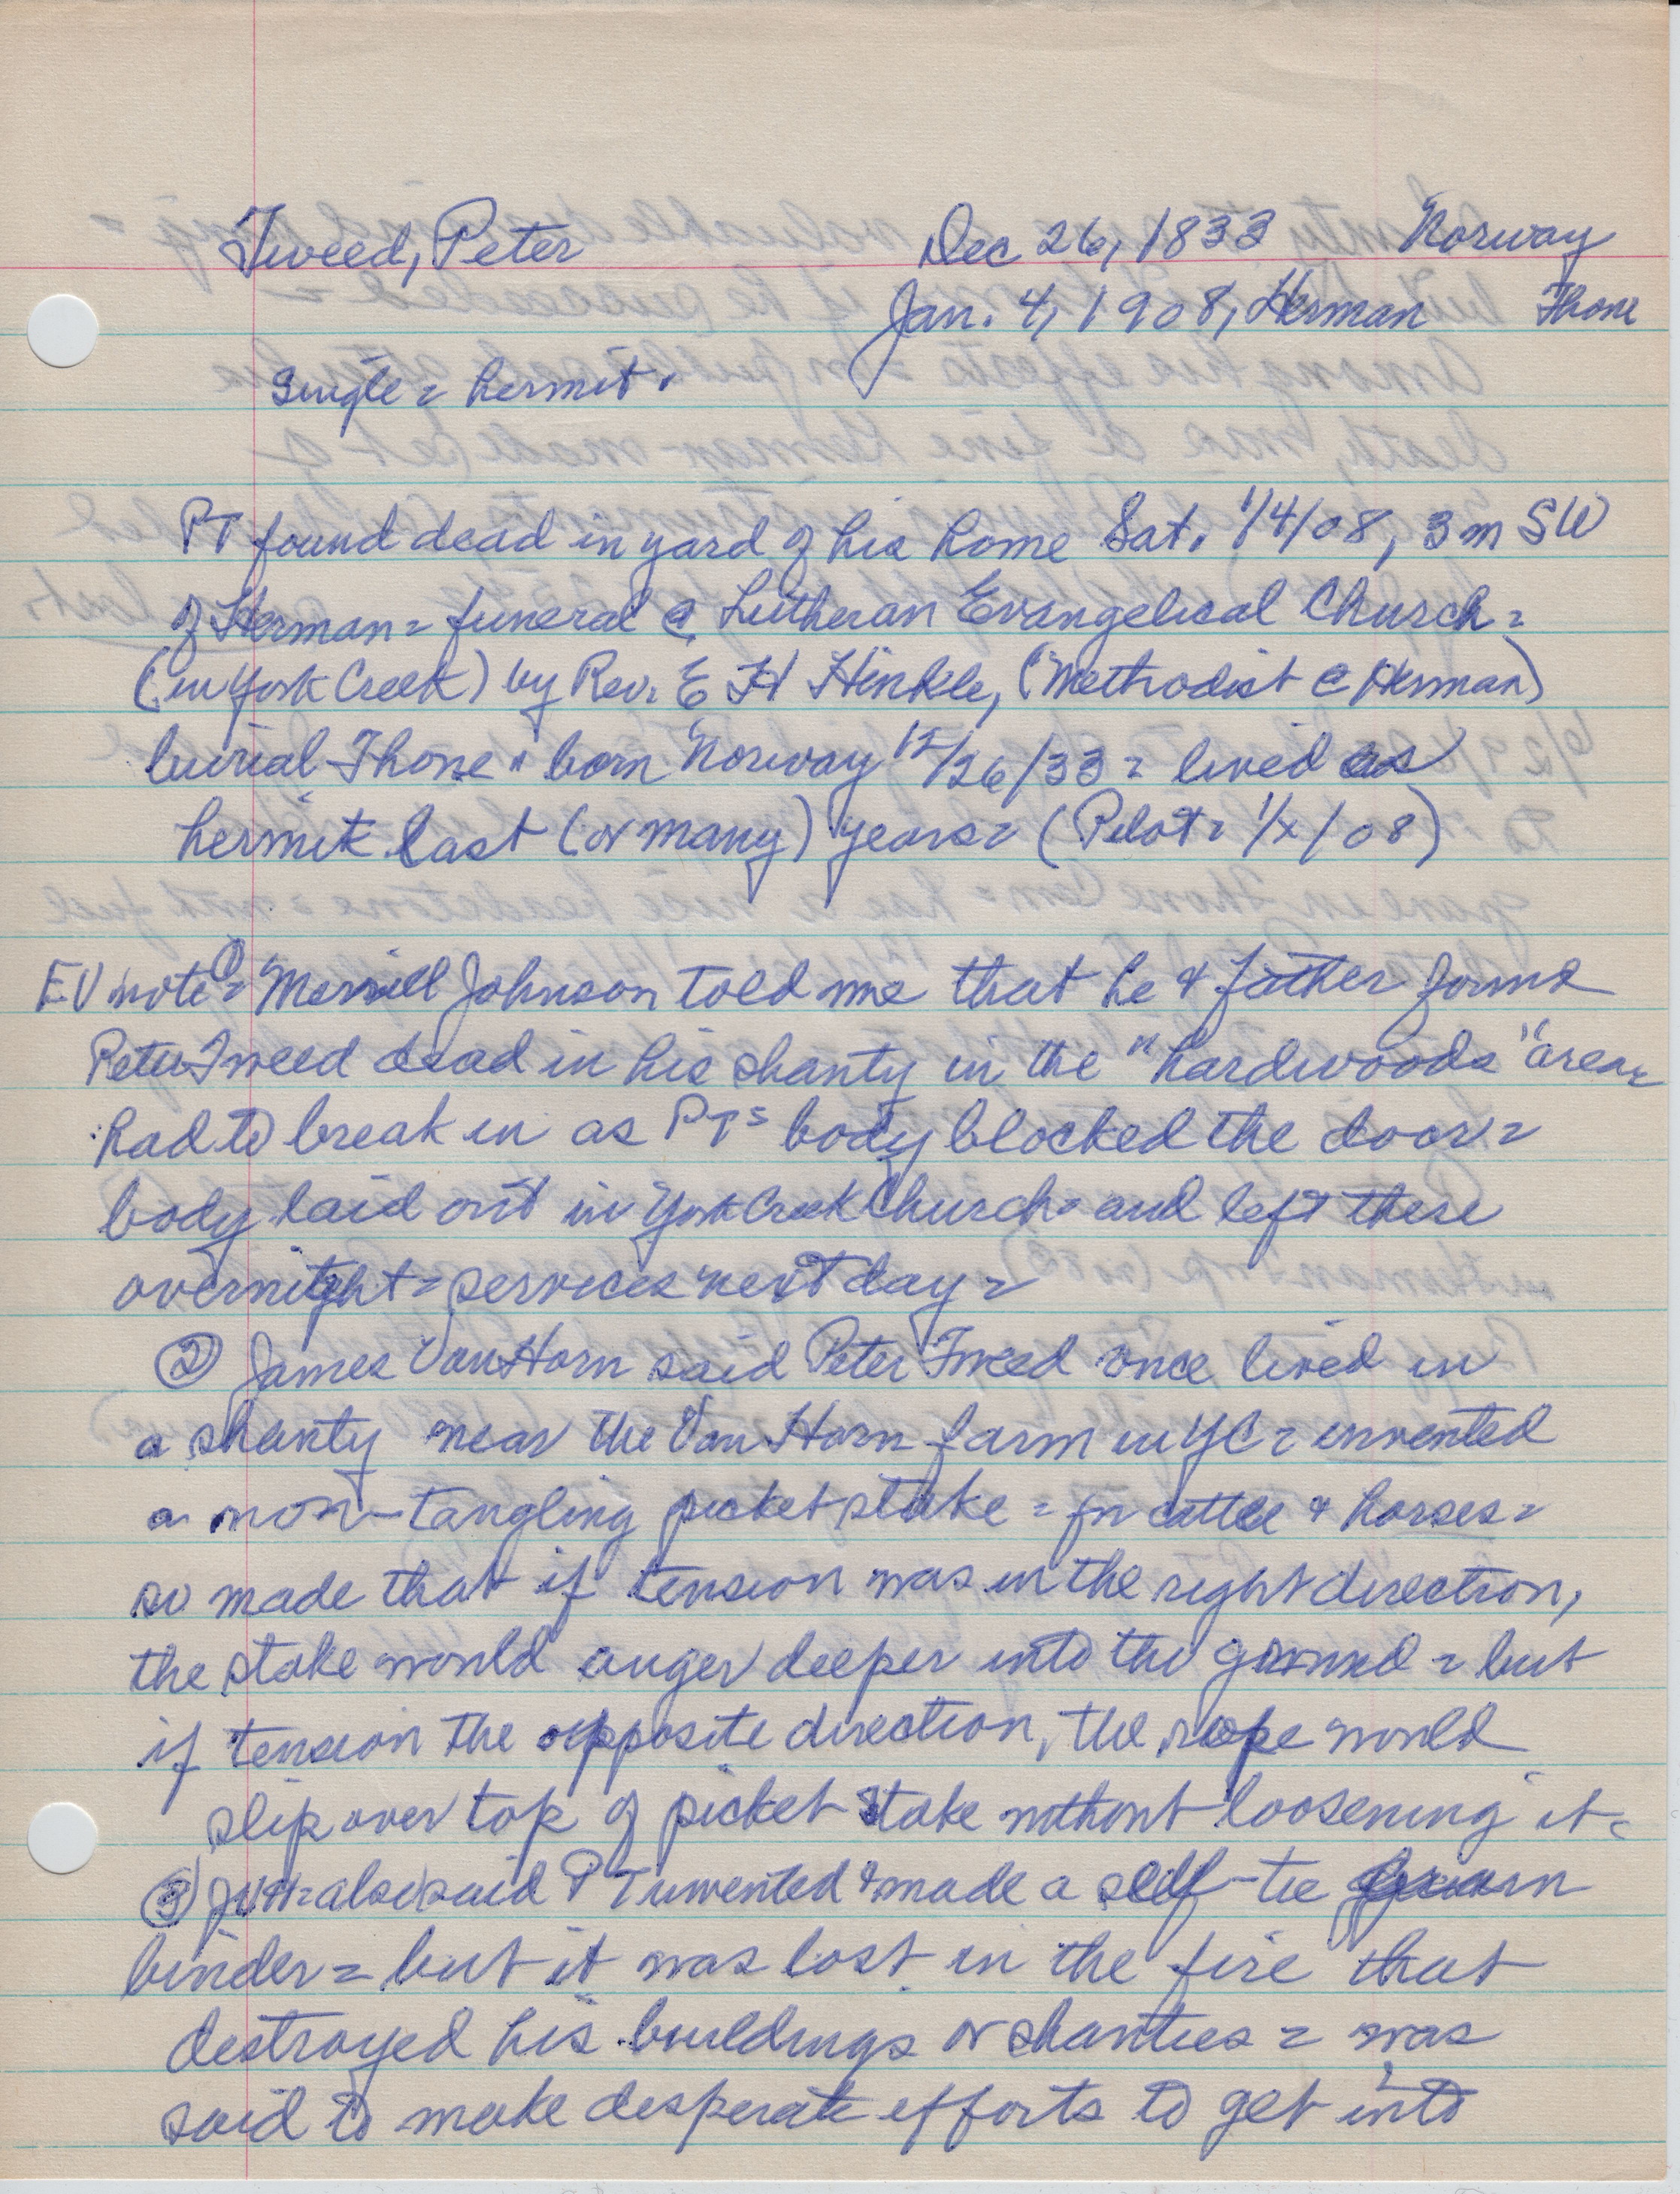 Tweed, Peter Dec 26, 1833 Norway
Jan. 4, 1908, Herman Thone
Single = hermit.
PT found dead in yard of his home Sat. 1/4/08, 3 m SW
of Herman = funeral @ Lutheran Evangelical Church =
(in York Creek) by Rev. E H Hinkle, (Methodist @ Herman)
burial Thone = born Norway 12/26/33 = lived as
hermit last (or many) years = (Pilot = 1/x/08)
EV note ① = Merrill Johnson told me that he & father found
Peter Tweed dead in his shanty in the "hardwoods" area =
had to break in as PTs body blocked the door =
body laid out in York Creek Church = and left there
overnight = services next day =
② James VanHorn said Peter Tweed once lived in
a shanty near the Van Horn farm in YC = invented
a non-tangling picket stake = for cattle & horses =
so made that if tension was in the right direction,
the stake would auger deeper into the ground = but
if tension the opposite direction, the rope would
slip over top of picket stake without loosening it =
③ JVH = also said PT invented & made a self-tie grain
binder = but it was lost in the fire that
destroyed his buildings or shanties = was
said to make desperate efforts to get into